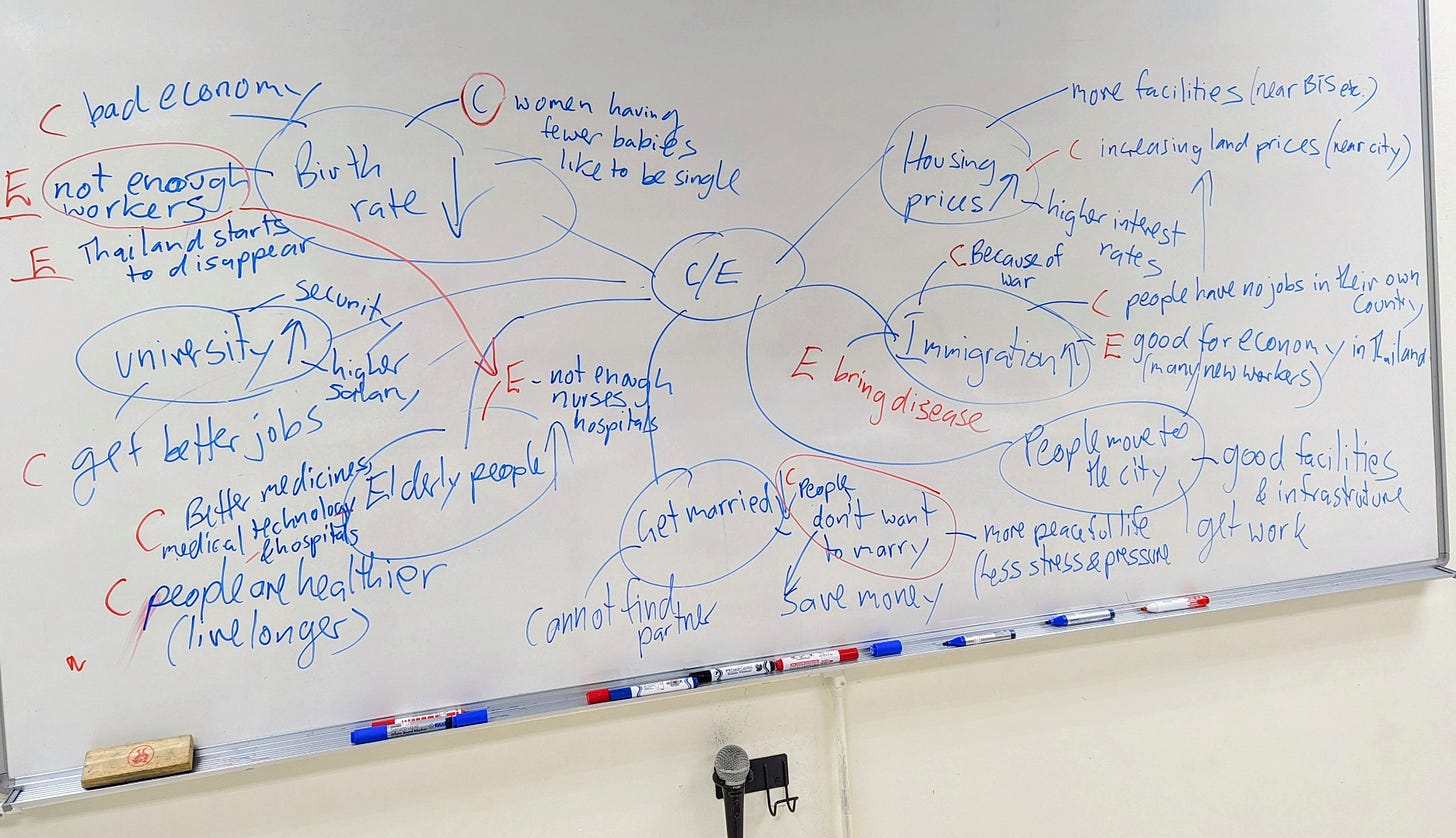 C bad economy
Birth
rate ↓
C women having
fewer babies
like to be single
E not enough
workers
E Thailand starts
to disappear
C/E
Housing
prices ↑
more facilities (near BTS etc.)
C increasing land prices (near city)
higher interest
rates
C Because of
war
Immigration ↑
C people have no jobs in their own
country
E good for economy in Thailand
(many new workers)
E bring disease
university ↑
security
higher
salary
C get better jobs
E - not enough
nurses
hospitals
Elderly people ↑
C Better medicines,
medical technology
& hospitals
C people are healthier
(live longer)
Get married ↓
C People
don't want
to marry
more peaceful life
(Less stress & pressure
Save money
Cannot find
partner
People move to
the city
good facilities
& infrastruture
get work